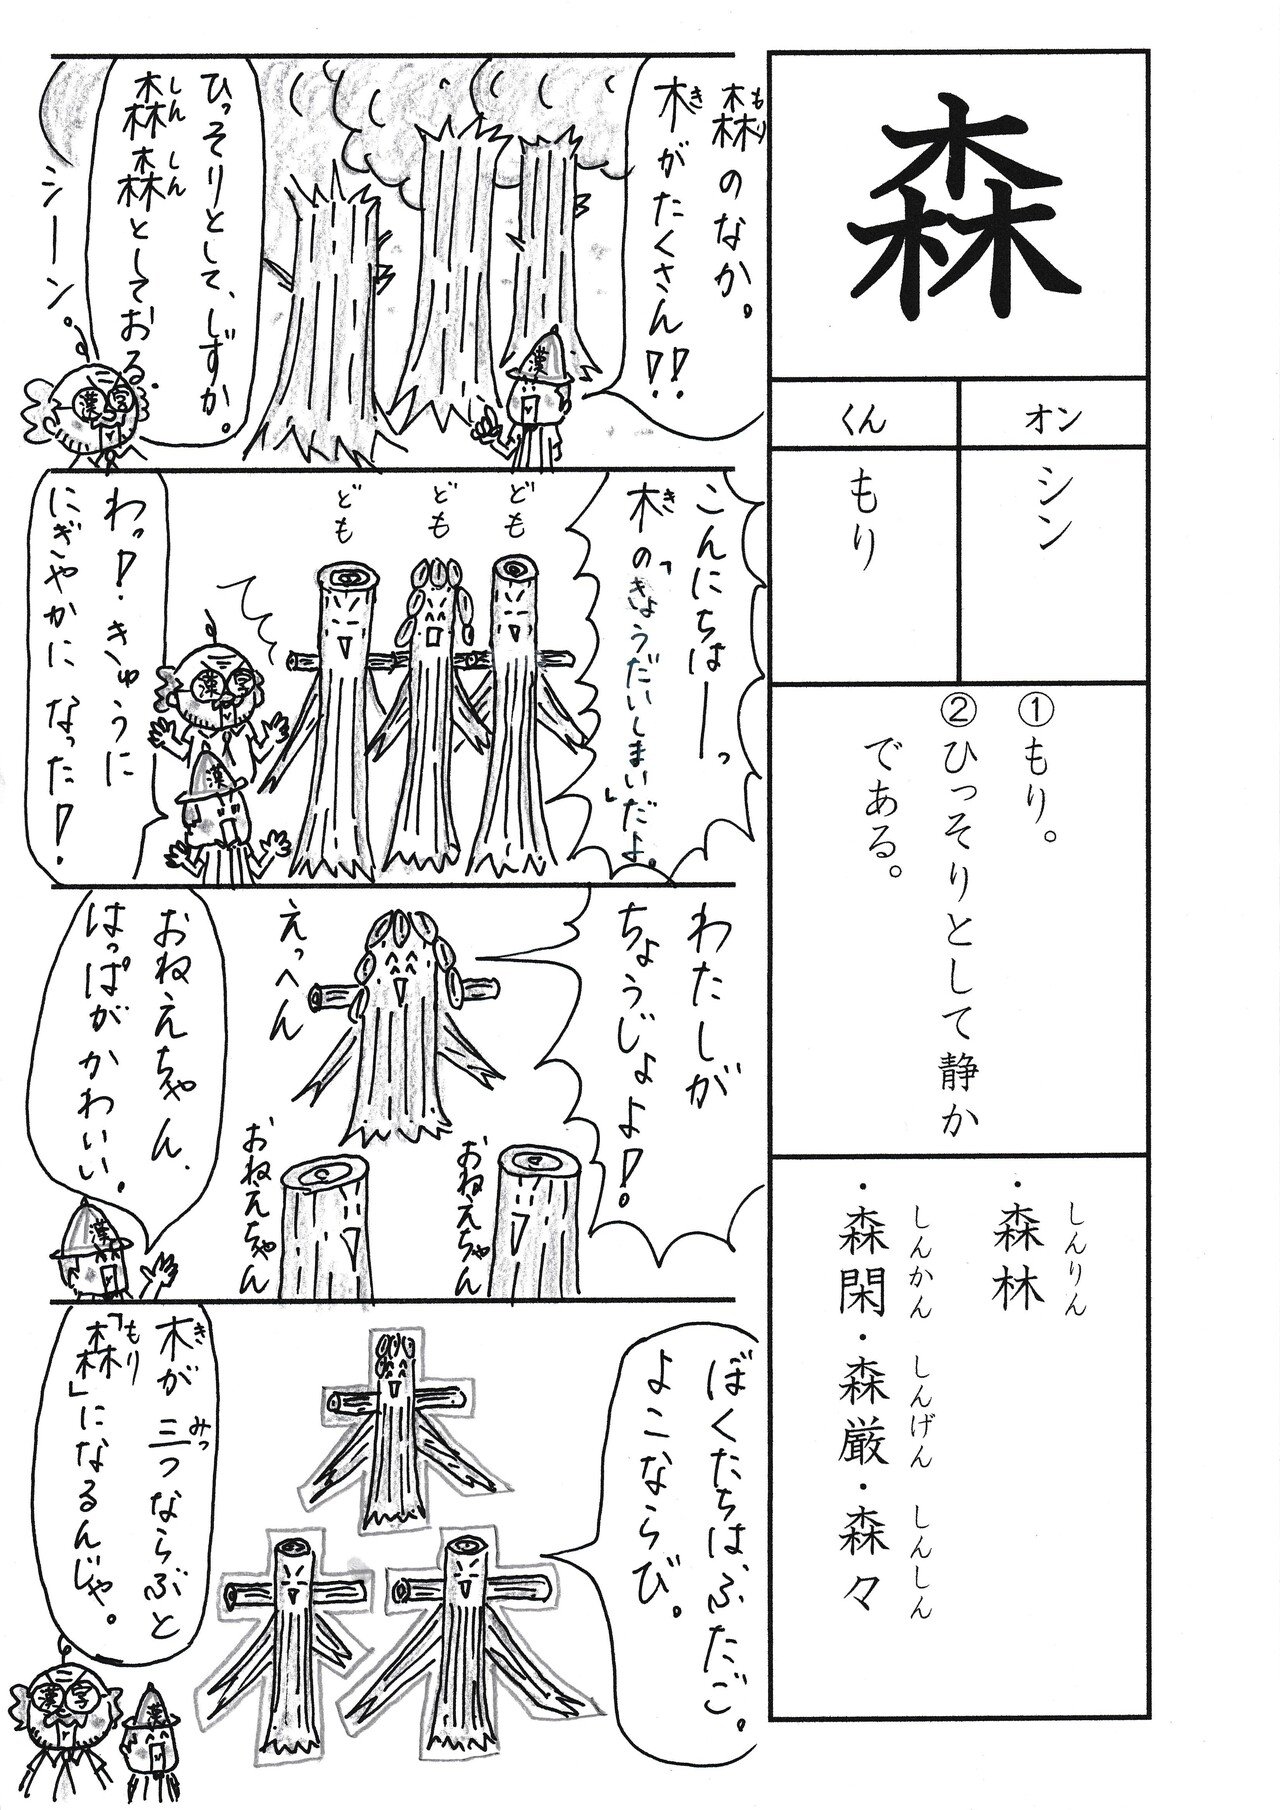 森
オン
シン
くん
もり
①もり。
②ひっそりとして静か
である。
・森林
しんりん
・森閑・森厳・森々
しんかん しんげん しんしん
森のなか。
もり
木がたくさん!!
き
ひっそりとして、しずか。
森森としておる。
しん しん
シーン。
漢
漢字
こんにちはーっ
木の「きょうだいしまい」だよ。
き
ども
ども
ども
わっ!きゅうに
にぎやかになった!
漢字
漢
わたしが
ちょうじょよ!
えっへん
おねえちゃん
おねえちゃん
おねえちゃん、
はっぱがかわいい。
漢
ぼくたちはふたご。
よこならび。
木が三つならぶと
き みっ
「森」になるんじゃ。
もり
漢字
漢